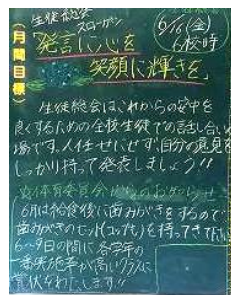 生徒総会
スローガン
「発言に心を
笑顔に輝きを」
6/16(金)
6校時
(月間目標)
生徒総会はこれからの安中を
良くするための全校生徒での話し合いの
場です。人任せにせず自分の意見を
しっかり持って発表しましょう!!
体育委員会からのおしらせ
6月は給食後に歯みがきをするので
歯みがきのセット(コップも)を持ってきて下さい
6~9日の間に各学年の
一番実施率が高いクラスに
賞状をわたします!!